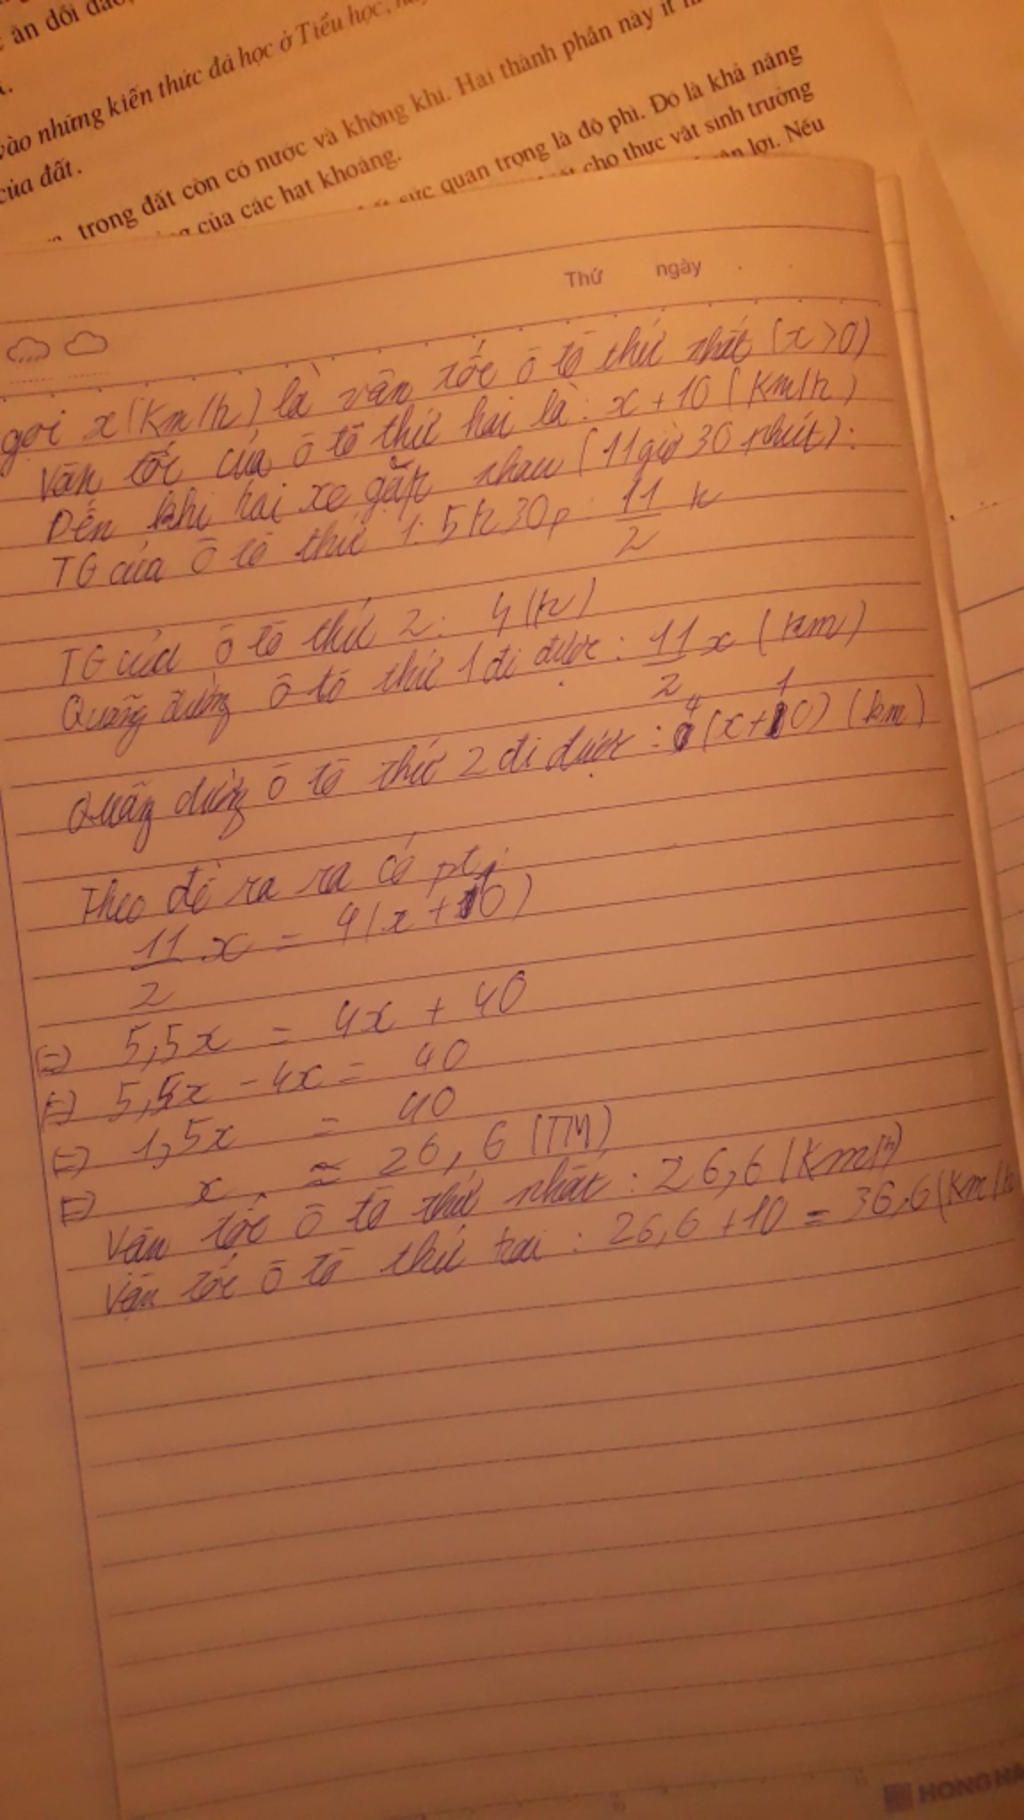 ăn dồi dào,
vào những kiến thức đã học ở Tiểu học,
của đất.
trong đất còn có nước và không khí. Hai thành phần này ít
của các hạt khoáng.
sức quan trọng là độ phì. Đó là khả năng
cho thực vật sinh trưởng
lợi. Nếu
Thứ ngày
gọi x (Km/h) là vân tốc ô tô thứ nhất (x>0)
Vân tốc của ô tô thứ hai là: x + 10 (Km/h)
Đến khi hai xe gặp nhau (11giờ 30 phút):
TG của ô tô thứ 1: 5h30p : 11/2 h
TG của ô tô thứ 2: 4 (h)
Quãng đường ô tô thứ 1 đi được: 11/2 x (km)
Quãng đường ô tô thứ 2 đi được: 4(x+10) (km)
Theo đề ra ra có pt:
11/2 x = 4(x+10)
(=) 5,5x = 4x + 40
(=) 5,5x - 4x = 40
(=) 1,5x = 40
(=) x ≈ 26,6 (TM)
Vân tốc ô tô thứ nhất: 26,6 (Km/h)
Vận tốc ô tô thứ hai: 26,6 + 10 = 36,6 (Km/h
HONG HA